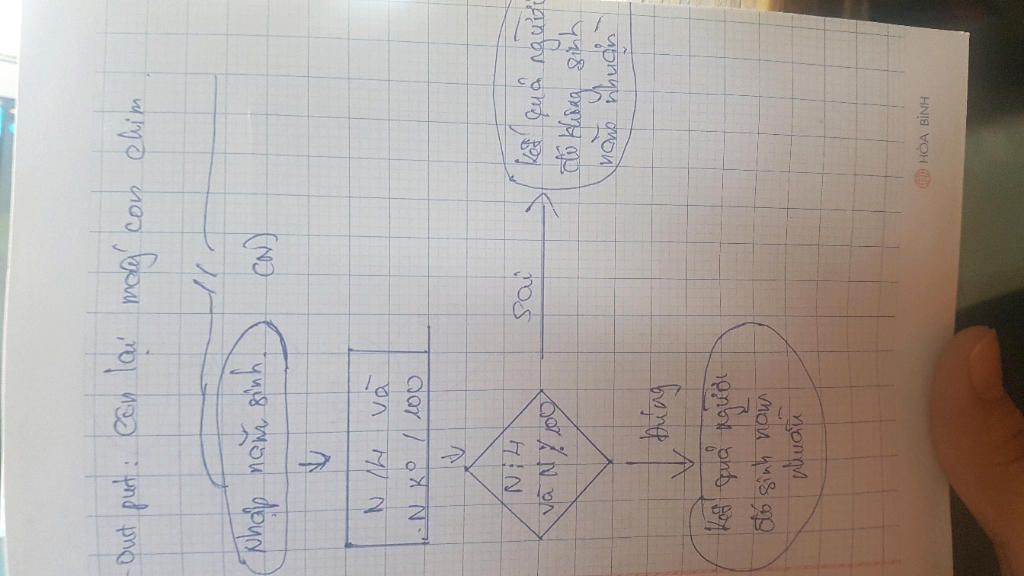 - Out put: Còn lại mấy con chim
Nhập năm sinh (N)
N / 4 và
N k° / 100
N ⋮ 4
và N ⋮̸ 100
Sai
Kết quả người
đó không sinh
năm nhuận
Đúng
Kết quả người
đó sinh năm
nhuận
HÒA BÌNH